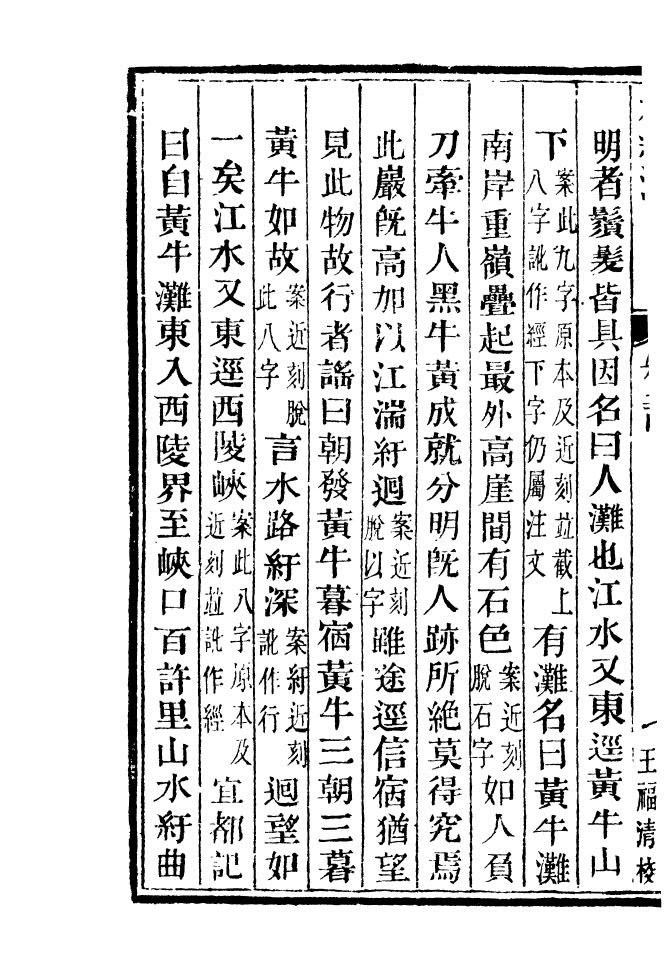 王福清校
明者鬚髮皆具因名曰人灘也江水又東逕黃牛山
下案此九字原本及近刻竝截上八字訛作經下字仍屬注文有灘名曰黃牛灘
南岸重嶺疊起最外高崖間有石色案近刻脫石字如人負
刀牽牛人黑牛黃成就分明旣人跡所絶莫得究焉
此巖旣高加以江湍紆迴案近刻脫以字雖途逕信宿猶望
見此物故行者謠曰朝發黃牛暮宿黃牛三朝三暮
黃牛如故案近刻脫此八字言水路紆深案紆近刻訛作行迴望如
一矣江水又東逕西陵峽案此八字原本及近刻竝訛作經宜都記
曰自黃牛灘東入西陵界至峽口百許里山水紆曲